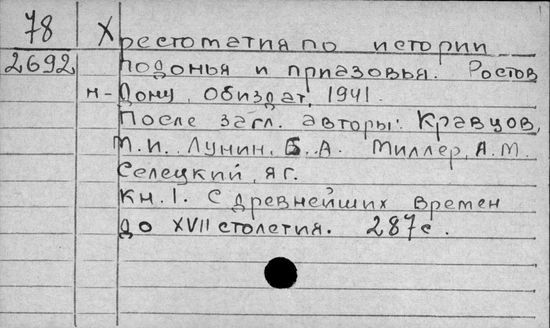 78
2692
Хрестоматия по истории
Подонья и приазовья. Ростов
н-Дону, Обиздат, 1941.
После загл. авторы: Кравцов,
Т.И. Лунин, Б.А. Миллер, А.М.
Селецкий, Я Г.
Кн. I. С древнейших времен
до XVII столетия. 287с.